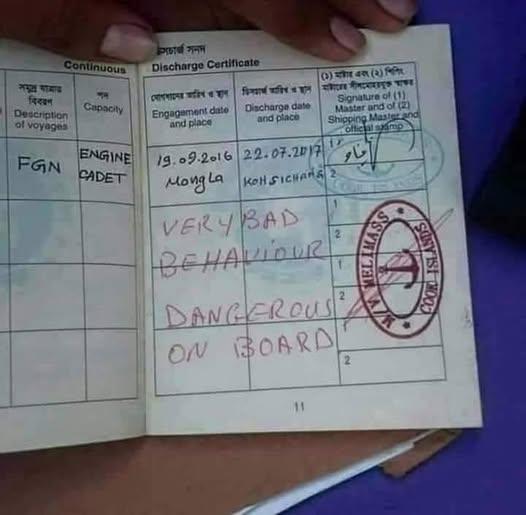 ডিসচার্জ সনদ
Continuous Discharge Certificate
সমুদ্র যাত্রার
বিবরণ
Description
of voyages
পদ
Capacity
যোগদানের তারিখ ও স্থান
Engagement date
and place
ডিসচার্জ তারিখ ও স্থান
Discharge date
and place
(১) মাষ্টার এবং (২) শিপিং
মাষ্টারের সীলমোহরযুক্ত স্বাক্ষর
Signature of (1)
Master and of (2)
Shipping Master and
official stamp
FGN
ENGINE
CADET
19.09.2016
Mongla
22.07.2017
KOHSICHANG
1
2
VERY BAD
BEHAVIOUR
DANGEROUS
ON BOARD
1
2
1
2
1
2
M/V MELIMASS
COOK ISLANDS
11